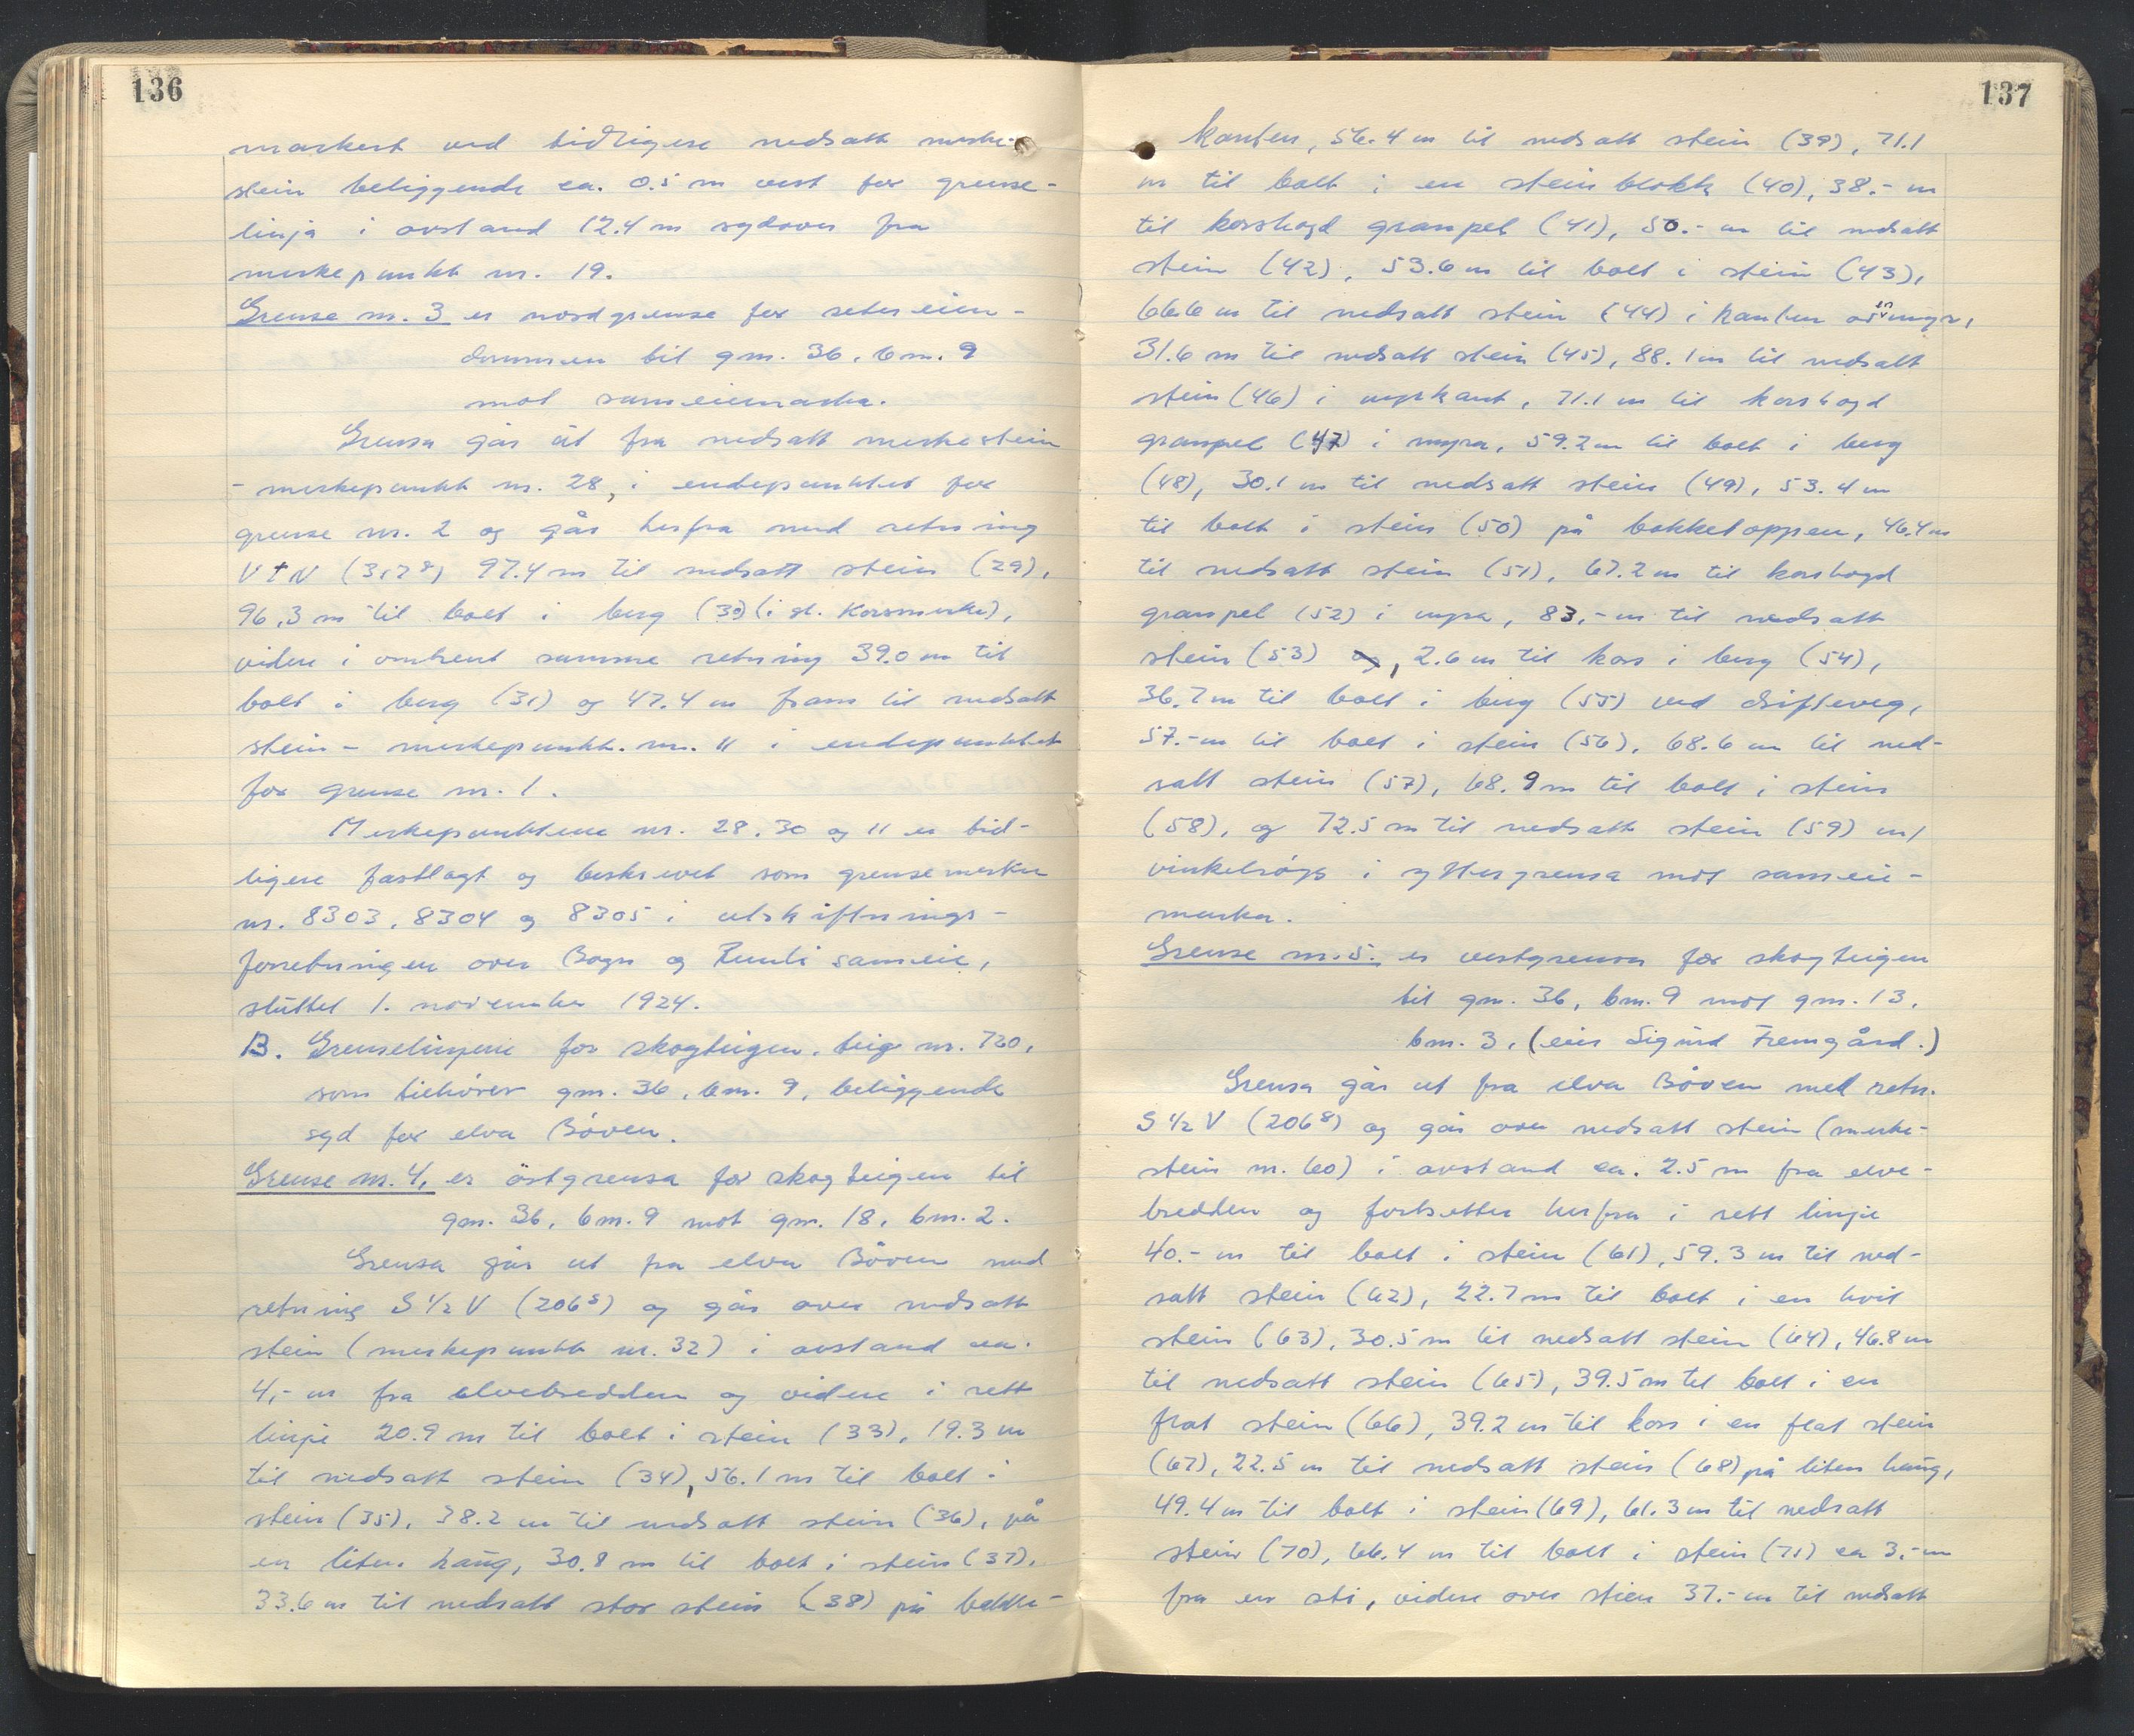 136
markert ved tidligere nedsatt merke-
stein beliggende ca. 0.5 m vest for grense-
linja i avstand 12.4 m sydover fra
merkepunkt nr. 19.
Grense nr. 3 er nordgrense for seter eien-
dommen til gnr. 36, bnr. 9
mot sameiemarka.
Grensa går ut fra nedsatt merkestein
- merkepunkt nr. 28, i endepunktet for
grense nr. 2 og går herfra med retning
V t N (317⁸) 97.4 m til nedsatt stein (29),
96,3 m til bolt i berg (30) (i gl. korsmerke),
videre i omtrent samme retning 39.0 m til
bolt i berg (31) og 47.4 m fram til nedsatt
stein - merkepunkt nr. 11 i endepunktet
for grense nr. 1.
Merkepunktene nr. 28, 30 og 11 er tid-
ligere fastlagt og beskrevet som grensemerker
nr. 8303, 8304 og 8305 i utskiftnings-
forretningen over Bagn og Reinli sameie,
sluttet 1. november 1924.
B. Grenselinjene for skogteigen, teig nr. 720,
som tilhører gnr. 36, bnr. 9, beliggende
syd for elva Bøven.
Grense nr. 4, er östgrensa for skogteigen til
gnr. 36, bnr. 9 mot gnr. 18, bnr. 2.
Grensa går ut fra elva Bøven med
retning S ½ V (206⁸) og går over nedsatt
stein (merkepunkt nr. 32) i avstand ca.
4,- m fra elvebredden og videre i rett
linje 20.9 m til bolt i stein (33), 19.3 m
til nedsatt stein (34), 56.1 m til bolt i
stein (35), 38.2 m til nedsatt stein (36), på
en liten haug, 30.8 m til bolt i stein (37),
33.6 m til nedsatt stor stein (38) på bakke-
137
kanten, 56.4 m til nedsatt stein (39), 71.1
m til bolt i en steinblokk (40), 38.- m
til korshogd granpel (41), 50.- m til nedsatt
stein (42), 53.6 m til bolt i stein (43),
66.6 m til nedsatt stein (44) i kanten av en myr,
31.6 m til nedsatt stein (45), 88.1 m til nedsatt
stein (46) i myrkant, 71.1 m til korshogd
granpel (47) i myra, 59.2 m til bolt i berg
(48), 30.1 m til nedsatt stein (49), 53.4 m
til bolt i stein (50) på bakketoppen, 46.4 m
til nedsatt stein (51), 67.2 m til korshogd
granpel (52) i myra, 83,- m til nedsatt
stein (53) og, 2.6 m til kors i berg (54),
36.7 m til bolt i berg (55) ved drifteveg,
57.- m til bolt i stein (56), 68.6 m til ned-
satt stein (57), 68.9 m til bolt i stein
(58), og 72.5 m til nedsatt stein (59) m/
vinkelrøys i yttergrensa mot sameie-
marka.
Grense nr. 5. er vestgrensa for skogteigen
til gnr. 36, bnr. 9 mot gnr. 13,
bnr. 3, (eier Sigurd Fremgård.)
Grensa går ut fra elva Bøven med retn.
S ½ V (206⁸) og går over nedsatt stein (merke-
stein nr. 60) i avstand ca. 2.5 m fra elve-
bredden og fortsetter herfra i rett linje
40.- m til bolt i stein (61), 59.3 m til ned-
satt stein (62), 22.7 m til bolt i en hvit
stein (63), 30.5 m til nedsatt stein (64), 46.8 m
til nedsatt stein (65), 39.5 m til bolt i en
flat stein (66), 39.2 m til kors i en flat stein
(67), 22.5 m til nedsatt stein (68) på liten haug,
49.4 m til bolt i stein (69), 61.3 m til nedsatt
stein (70), 66.4 m til bolt i stein (71) ca 3.- m
fra en sti, videre over stien 37.- m til nedsatt